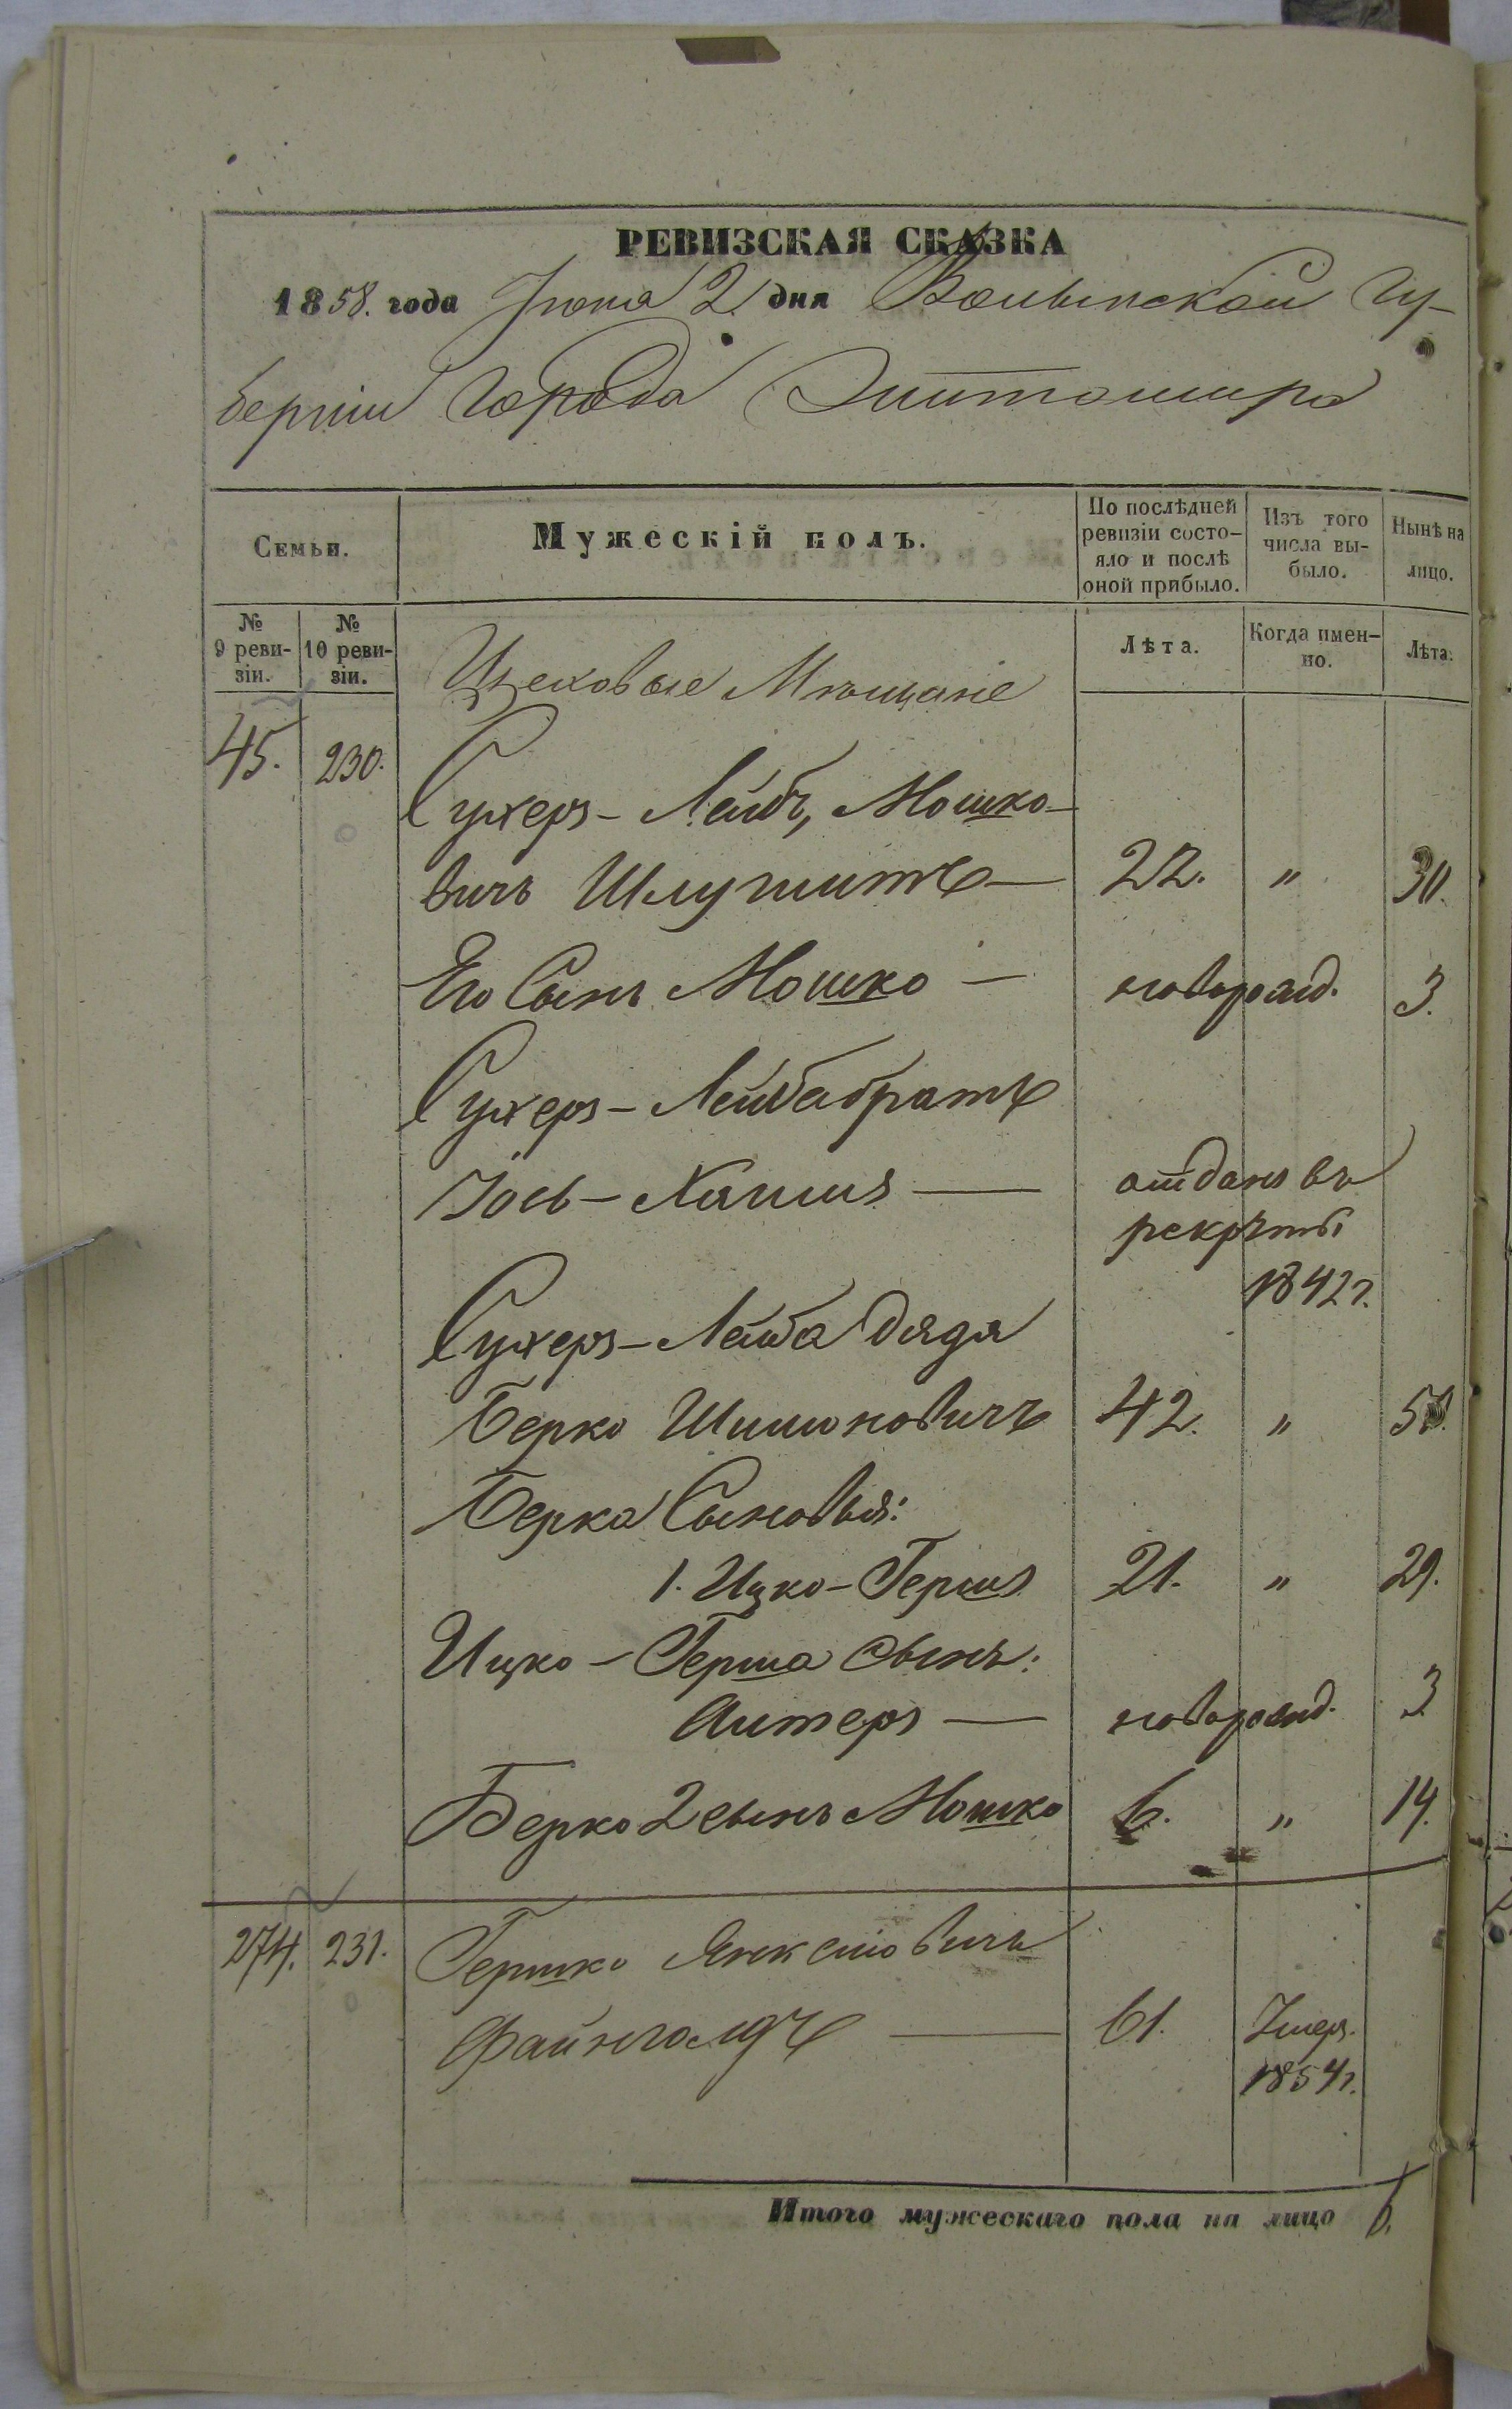 РЕВИЗСКАЯ СКАЗКА
1858. года Июня 2. дня Волынской Гу-
берніи Города Житомира
Семьи.
Мужескій полъ.
По послѣдней ревизіи состо-
яло и послѣ оной прибыло.
Изъ того числа вы-
было.
Нынѣ на лицо.
№ 9 реви-
зіи.
№ 10 реви-
зіи.
Лѣта.
Когда имен-
но.
Лѣта.
Цеховые Мѣщане
45. 230. Сухеръ - Лейбъ, Мошко-
вичъ 22. " 30.
Его Сынъ Мошко — новорожд. 3.
Сухеръ - Лейба братъ
Іось - Хаимъ — отданъ въ
рекруты
1842 г.
Сухеръ - Лейба дядя
Берко Шимоновичъ 42. " 50.
Берка Сыновья:
1. Ицко - Гершъ 21. " 29.
Ицко - Герша сынъ:
Алтеръ — новорожд. 3
Берко 2 сынъ Мошко 6. " 14.
274. 231. Гершко Янкелiовичъ
Файнголдъ — 61. Умеръ.
1854 г.
Итого мужескаго пола на лицо 6.